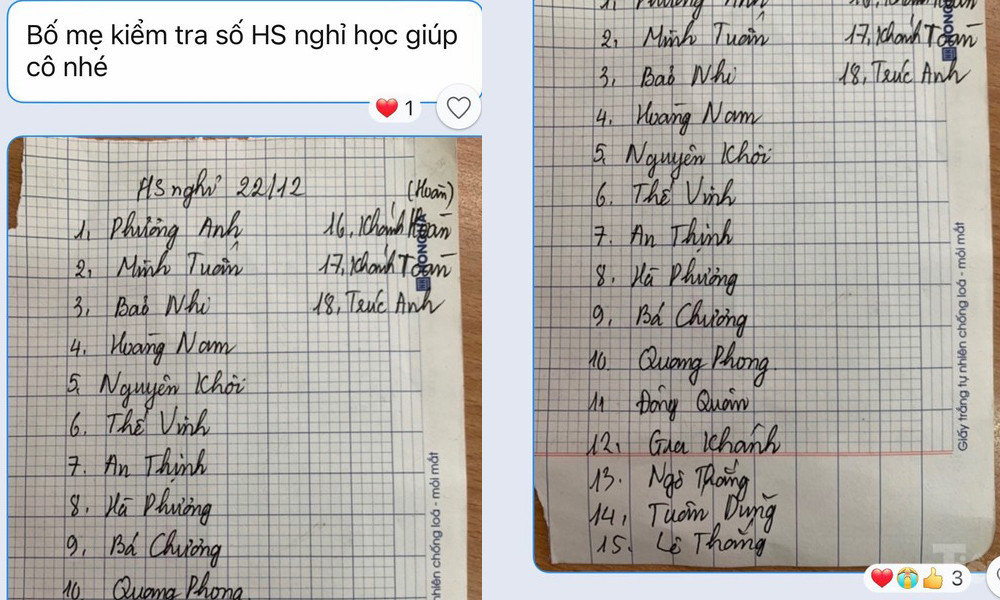 Bố mẹ kiểm tra số HS nghỉ học giúp
cô nhé
1
HS nghỉ 22/12
(Hoàn)
1, Phương Anh
16, Khánh
2, Minh Tuấn
17, Khánh Toàn
3, Bảo Nhi
18, Trúc Anh
4. Hoàng Nam
5. Nguyên Khôi
6. Thế Vinh
7. An Thịnh
8. Hà Phương
9. Bá Chương
10 Quang Phong
HONG HA
2, Minh Tuấn
17, Khánh Toàn
3, Bảo Nhi
18, Trúc Anh
4. Hoàng Nam
5. Nguyên Khôi
6. Thế Vinh
7. An Thịnh
8. Hà Phương
9. Bá Chương
10. Quang Phong.
11 Đông Quân
12. Gia Khánh
13. Ngô Thắng
14, Tuấn Dũng
15. Lê Thắng
Giấy trắng tự nhiên chống loá - mỏi mắt
3